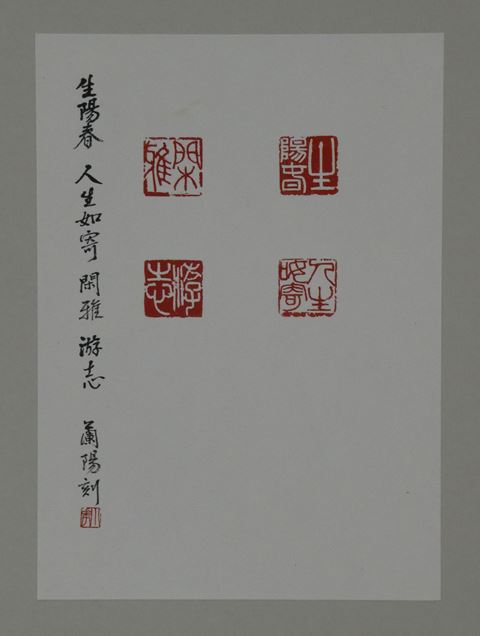 生陽春
人生如寄
閑雅
游志
生陽春 人生如寄 閑雅 游志 蘭陽刻